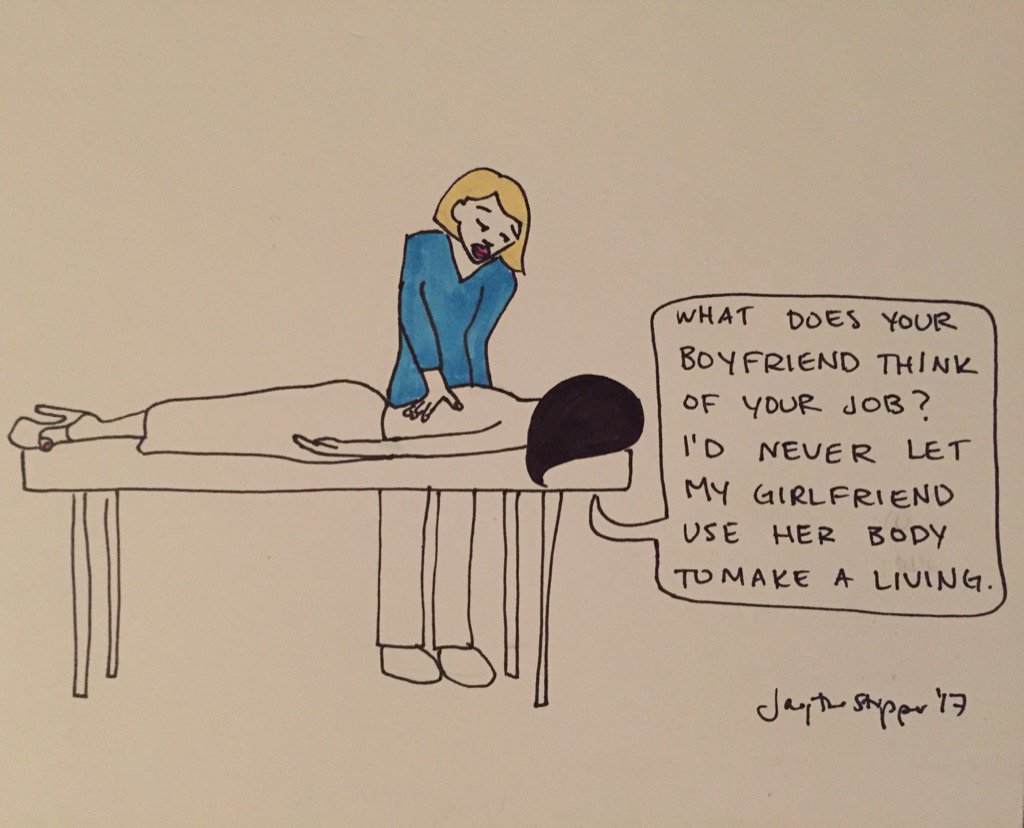 WHAT DOES YOUR
BOYFRIEND THINK
OF YOUR JOB?
I'D NEVER LET
MY GIRLFRIEND
USE HER BODY
TO MAKE A LIVING.
Jacq the Stripper '17